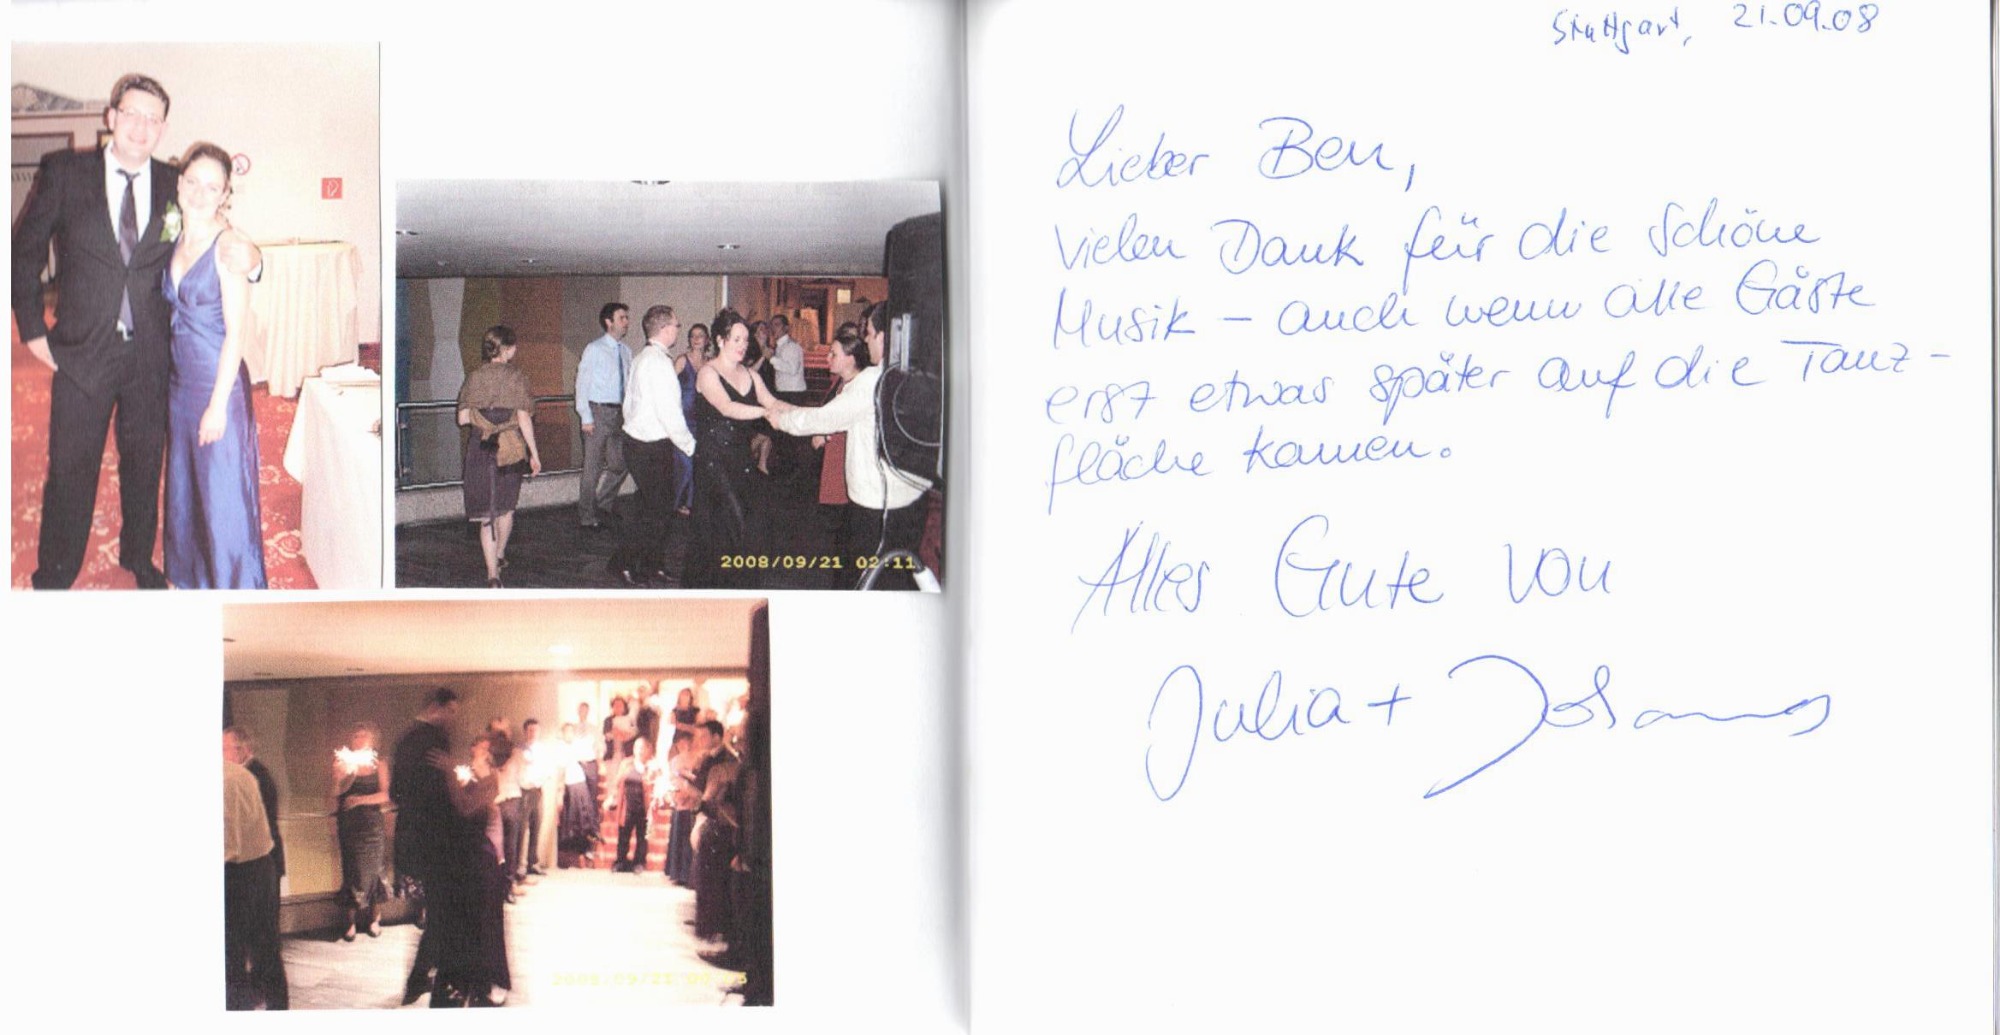 2008/09/21 02:11
Stuttgart, 21.09.08
Lieber Ben,
vielen Dank für die schöne
Musik – auch wenn alle Gäste
erst etwas später auf die Tanz-
fläche kamen.
Alles Gute von
Julia + Johannes